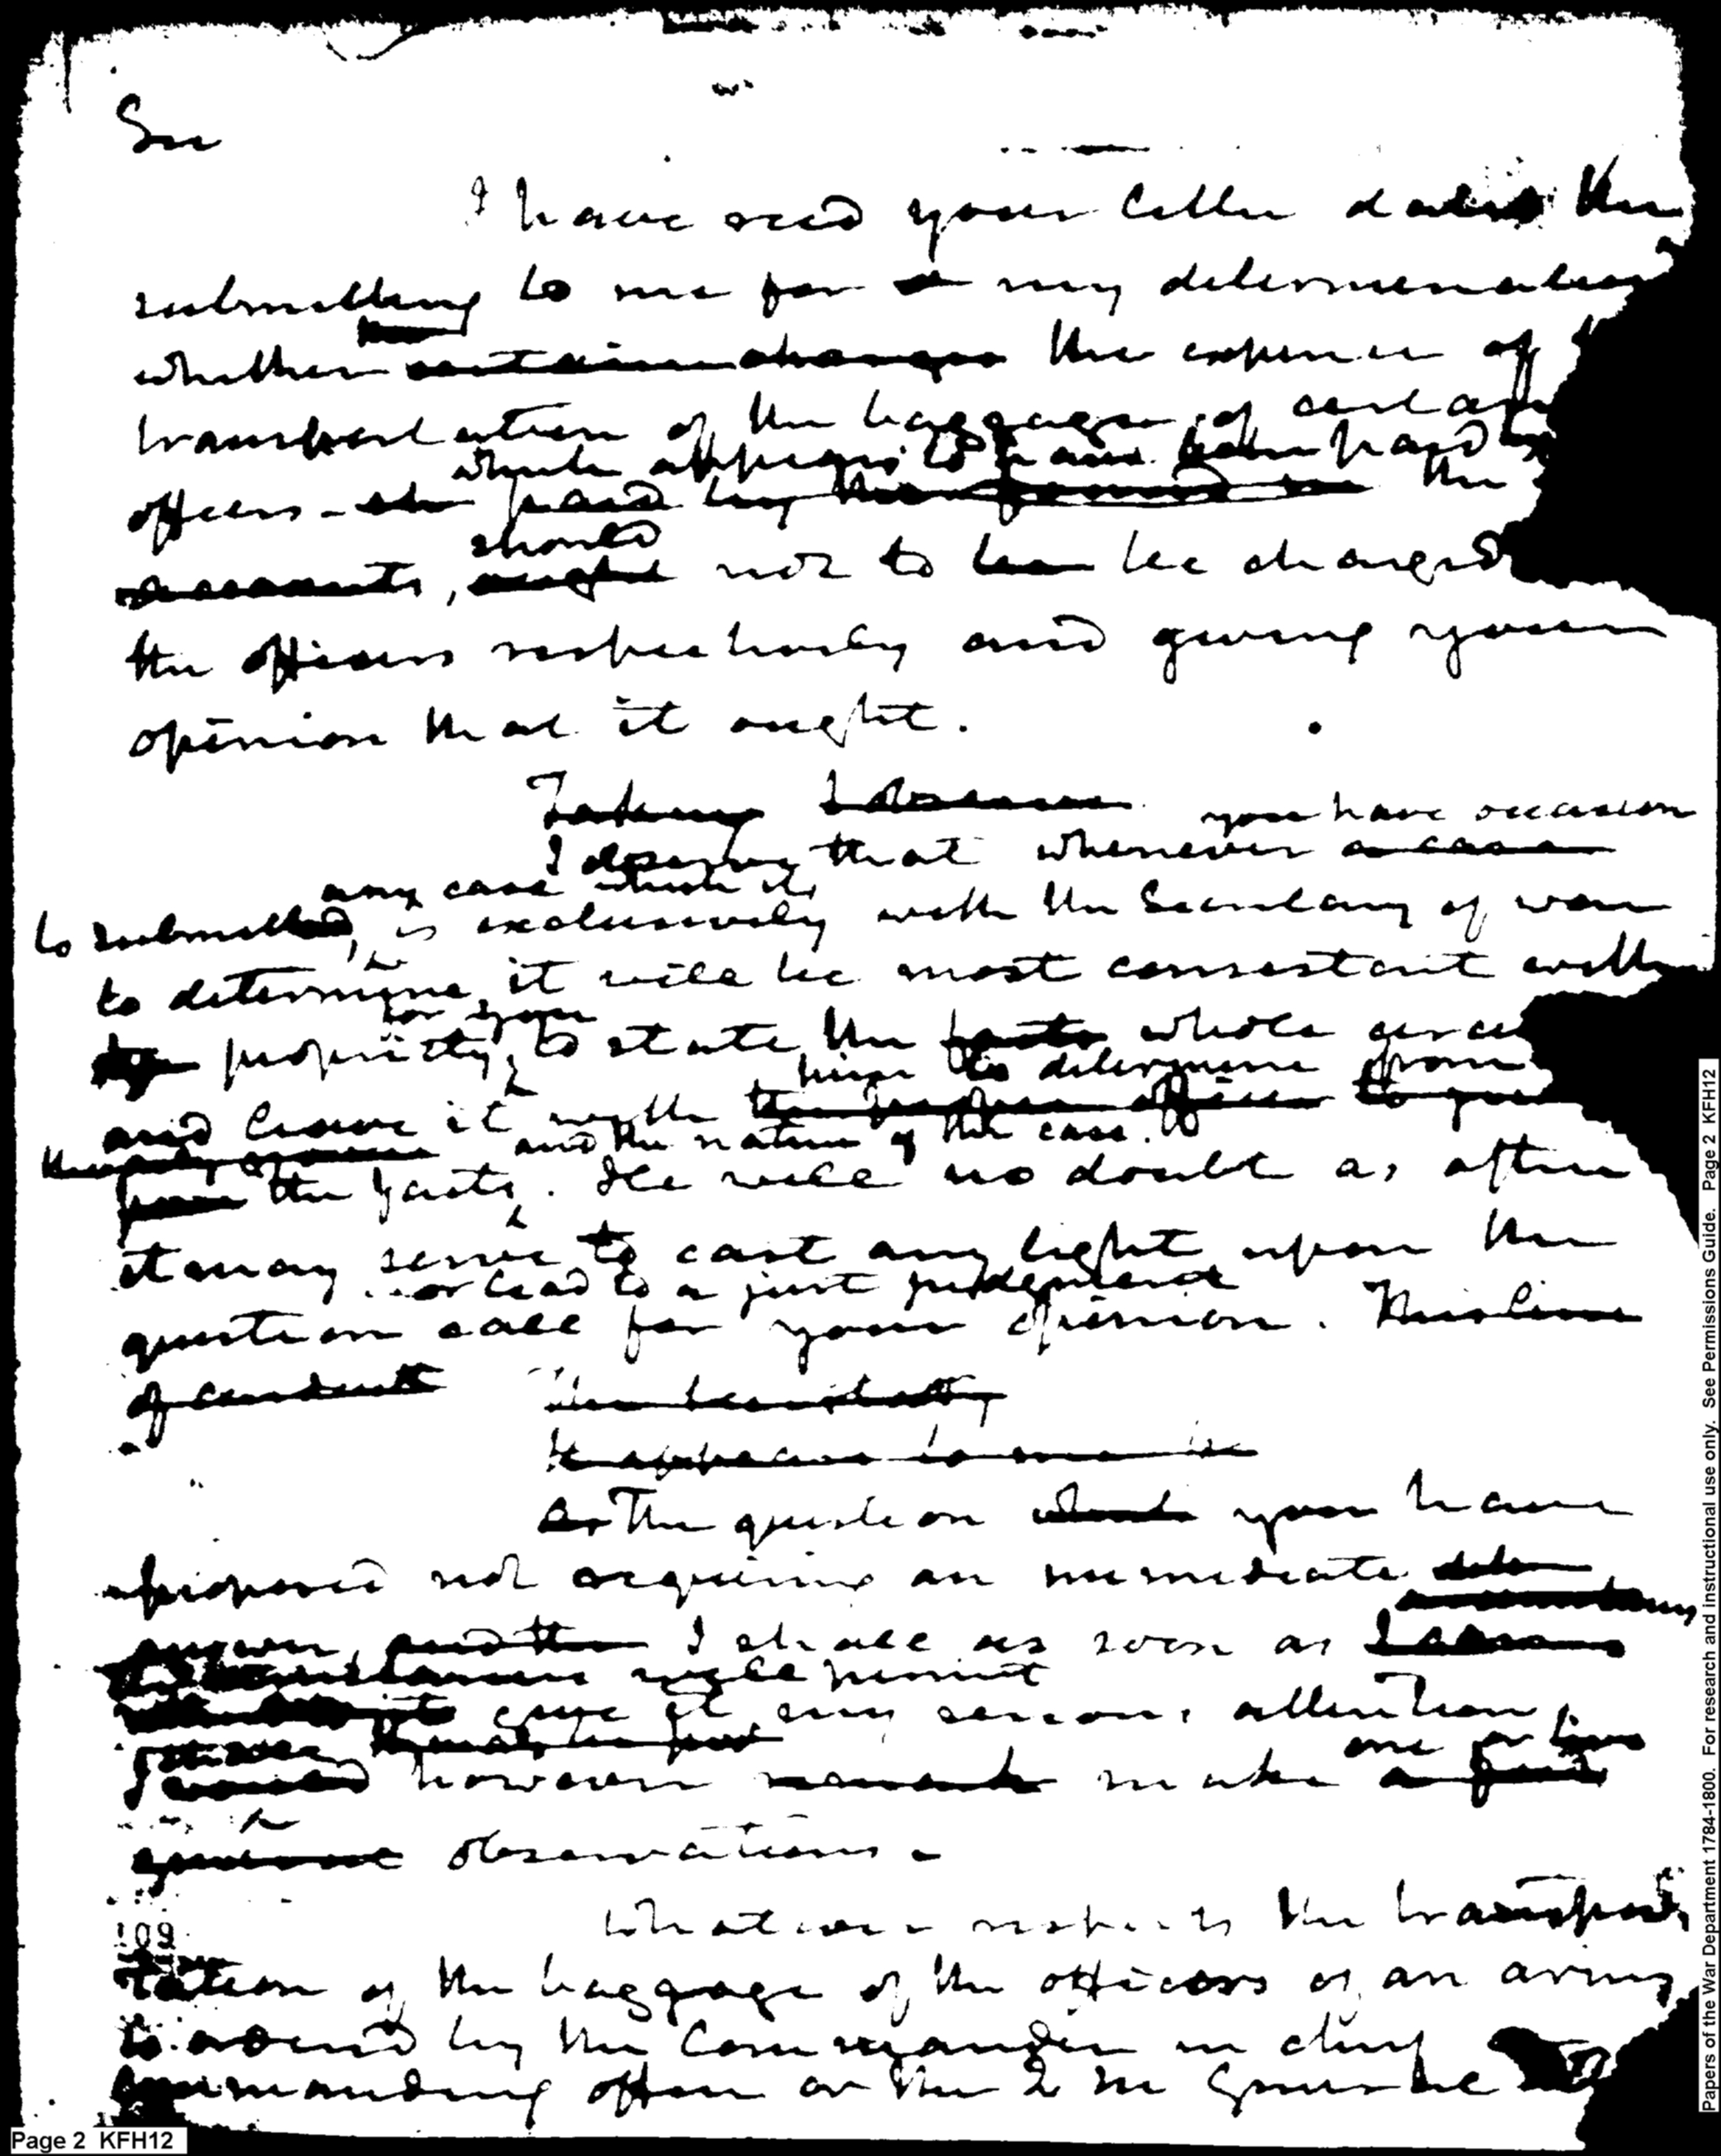 Sir
I have recd your letter dated the
submitting to me for my determination
whether certain charges the expence of
transportation of the baggage of certain
which appears to have been paid
officers paid by the
should
accounts, ought not to be be charged
the officers respectively and giving your
opinion that it ought.
Taking I observe you have occasion
I observe that whenever a case
any case which it
to submitted, is exclusively with the Secretary of war
to determine, it will be most consistent with
for you
propriety, to state the facts whole
him to determine from
and leave it with the proper officer to
and the nature of the case.
from the facts. He will no doubt as often
it may serve to cast any light upon the
or lead to a just judgement
question call for your opinion. This line
of conduct
It appears to me
as The question which you have
proposed not requiring an immediate
answer, and the I shall as soon as
circumstances will permit
it give it my serious attention
one or two
I however remark make a few
general observations.
Whatever respects the transpor
109
tation of the baggage of the officers of an army
to by the Commander in chief
commanding officer or the Q M General
Page 2 KFH12
Papers of the War Department 1784-1800. For research and instructional use only. See Permissions Guide. Page 2 KFH12